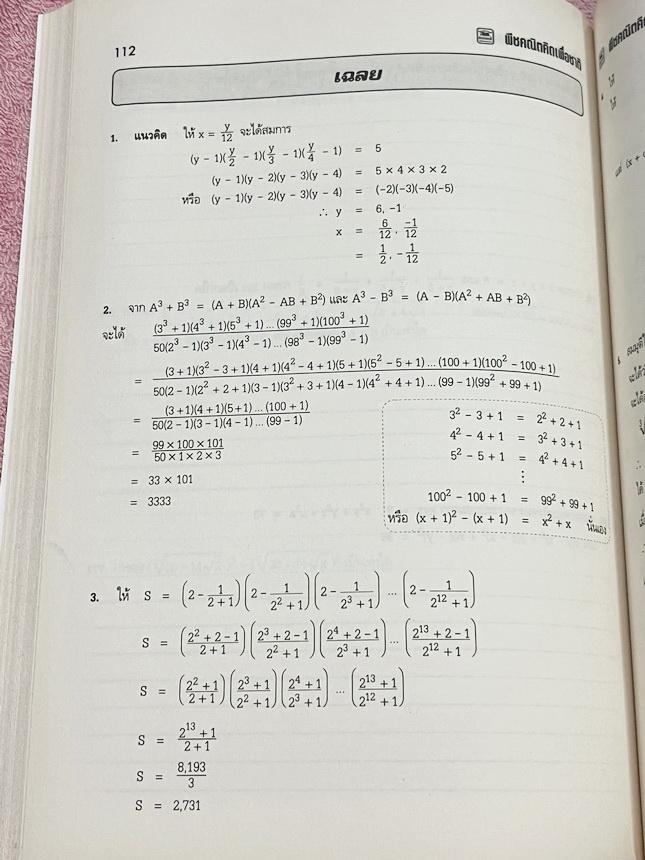 112
พีชคณิตคิดเพื่อชาติ
เฉลย
1. แนวคิด ให้ x = y/12 จะได้สมการ
(y − 1)(y/2 − 1)(y/3 − 1)(y/4 − 1) = 5
(y − 1)(y − 2)(y − 3)(y − 4) = 5 × 4 × 3 × 2
หรือ (y − 1)(y − 2)(y − 3)(y − 4) = (−2)(−3)(−4)(−5)
∴ y = 6, −1
x = 6/12, −1/12
= 1/2, −1/12
2. จาก A³ + B³ = (A + B)(A² − AB + B²) และ A³ − B³ = (A − B)(A² + AB + B²)
จะได้ (3³ + 1)(4³ + 1)(5³ + 1) ... (99³ + 1)(100³ + 1) / 50(2³ − 1)(3³ − 1)(4³ − 1) ... (98³ − 1)(99³ − 1)
= (3 + 1)(3² − 3 + 1)(4 + 1)(4² − 4 + 1)(5 + 1)(5² − 5 + 1) ... (100 + 1)(100² − 100 + 1) / 50(2 − 1)(2² + 2 + 1)(3 − 1)(3² + 3 + 1)(4 − 1)(4² + 4 + 1) ... (99 − 1)(99² + 99 + 1)
= (3 + 1)(4 + 1)(5+1) ... (100 + 1) / 50(2 − 1)(3 − 1)(4 − 1) ... (99 − 1)
= 99 × 100 × 101 / 50 × 1 × 2 × 3
= 33 × 101
= 3333
3² − 3 + 1 = 2² + 2 + 1
4² − 4 + 1 = 3² + 3 + 1
5² − 5 + 1 = 4² + 4 + 1
⋮
100² − 100 + 1 = 99² + 99 + 1
หรือ (x + 1)² − (x + 1) = x² + x นั่นเอง
3. ให้ S = (2 − 1/(2 + 1)) (2 − 1/(2² + 1)) (2 − 1/(2³ + 1)) ... (2 − 1/(2¹² + 1))
S = ((2² + 2 − 1)/(2 + 1)) ((2³ + 2 − 1)/(2² + 1)) ((2⁴ + 2 − 1)/(2³ + 1)) ... ((2¹³ + 2 − 1)/(2¹² + 1))
S = ((2² + 1)/(2 + 1)) ((2³ + 1)/(2² + 1)) ((2⁴ + 1)/(2³ + 1)) ... ((2¹³ + 1)/(2¹² + 1))
S = (2¹³ + 1)/(2 + 1)
S = 8,193/3
S = 2,731